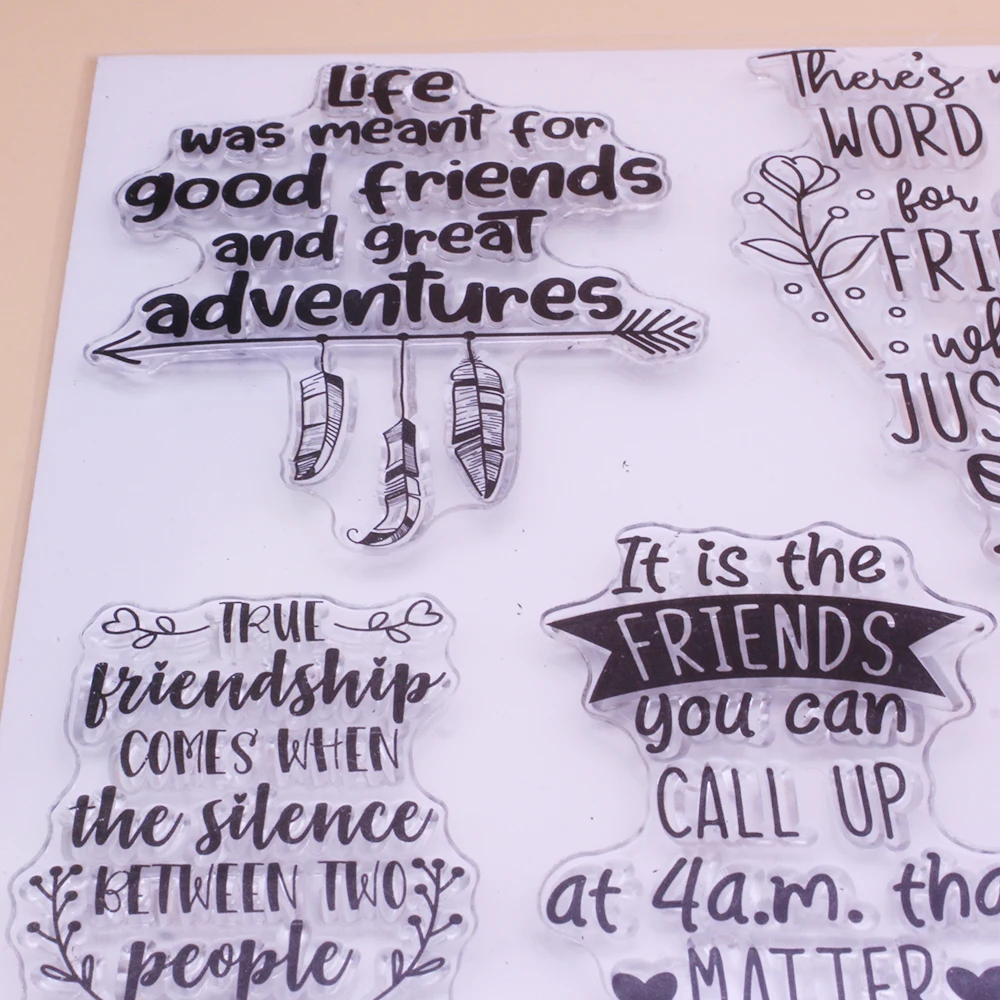 Life
was meant for
good friends
and great
adventures
There's
WORD
for
JUS
TRUE
friendship
COMES WHEN
the silence
BETWEEN TWO
people
It is the
FRIENDS
you can
CALL UP
at 4a.m. tha
MATTER